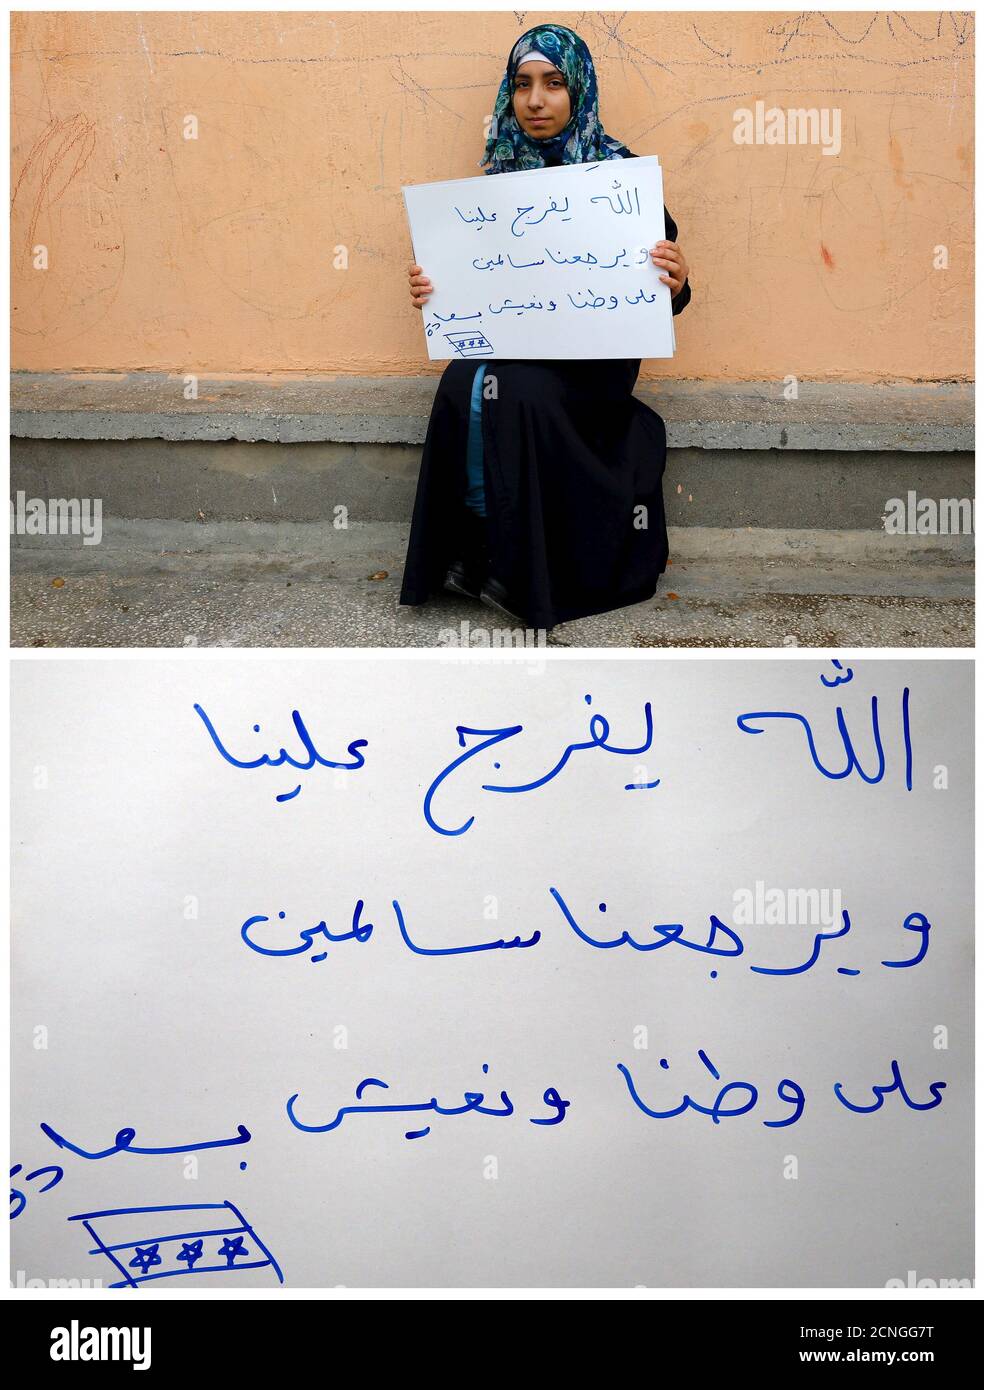 الله يفرج علينا
ويرجعنا سالمين
على وطنا ونعيش بسعادة
الله يفرج علينا
ويرجعنا سالمين
على وطنا ونعيش بسعادة
alamy
Image ID: 2CNGG7T
www.alamy.com